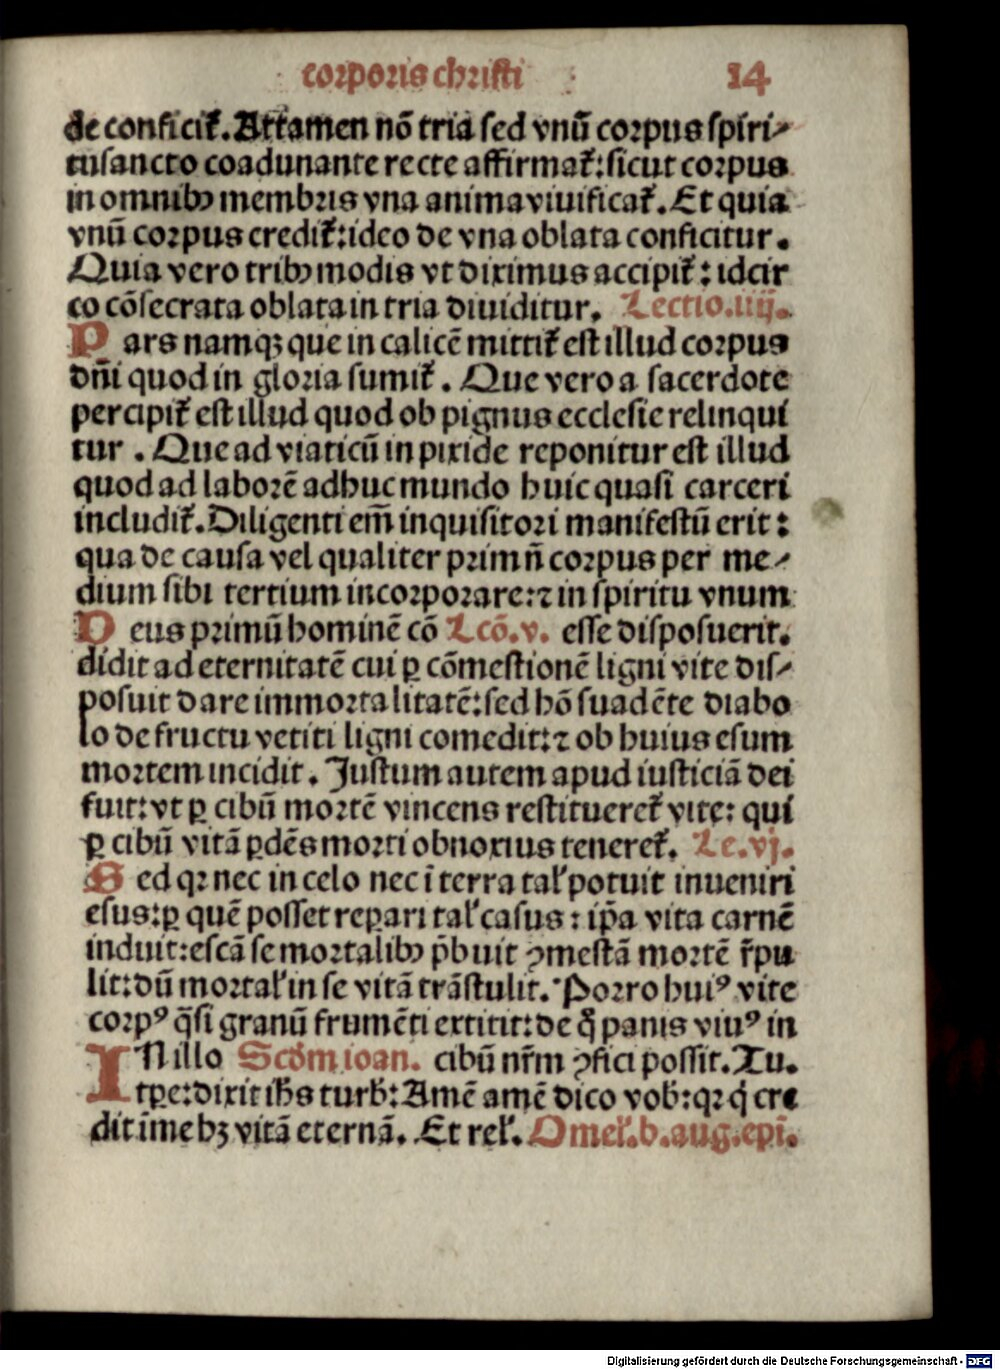 corporis christi 14
de conficit᷑. Attamen nō tria sed vnū corpus spiri-
tusancto coadunante recte affirmat᷑: sicut corpus
in omnibꝫ membris vna anima viuificat᷑. Et quia
vnū corpus credit᷑: ideo de vna oblata conficitur.
Quia vero tribꝫ modis vt diximus accipit᷑: idcir
co cōsecrata oblata in tria diuiditur. Lectio.iiij.
Pars namqꝫ que in calicē mittit᷑ est illud corpus
dn̄i quod in gloria sumit᷑. Que vero a sacerdote
percipit᷑ est illud quod ob pignus ecclesie relinqui
tur. Que ad viaticū in pixide reponitur est illud
quod ad laborē adhuc mundo huic quasi carceri
includit᷑. Diligenti em̄ inquisitori manifestū erit:
qua de causa vel qualiter primū corpus per me-
dium sibi tertium incorporare: ⁊ in spiritu vnum
Deus primū hominē cō Lcō.v. esse disposuerit.
didit ad eternitatē cui ꝑ cōmestionē ligni vite dis-
posuit dare immortalitatē: sed hō suadēte diabo
lo de fructu vetiti ligni comedit: ⁊ ob huius esum
mortem incidit. Justum autem apud iusticiā dei
fuit: vt ꝑ cibū mortē vincens restitueret᷑ vite: qui
ꝑ cibū vitā ꝑdēs morti obnoxius teneret᷑. Le.vj.
Sed qꝛ nec in celo nec ī terra tal' potuit inueniri
esus: ꝑ quē posset reꝑari tal' casus: ip̄a vita carnē
induit: escā se mortalibꝫ p̄buit ꝯmestā mortē r̄pu
lit: dū mortal' in se vitā trāstulit. Porro huiꝰ vite
corpꝰ q̄si granū frumēti extitit: de q̊ panis viuꝰ in
IN illo Scd̄m ioan. cibū nr̄m ꝯfici possit. Tu.
tꝑe: dixit ih̄s turb᷑: Amē amē dico vob᷑: qꝛ q̇ cre
dit ī me hꝫ vitā eternā. Et rel'. Omel'.b.aug.epī.
Digitalisierung gefördert durch die Deutsche Forschungsgemeinschaft - DFG